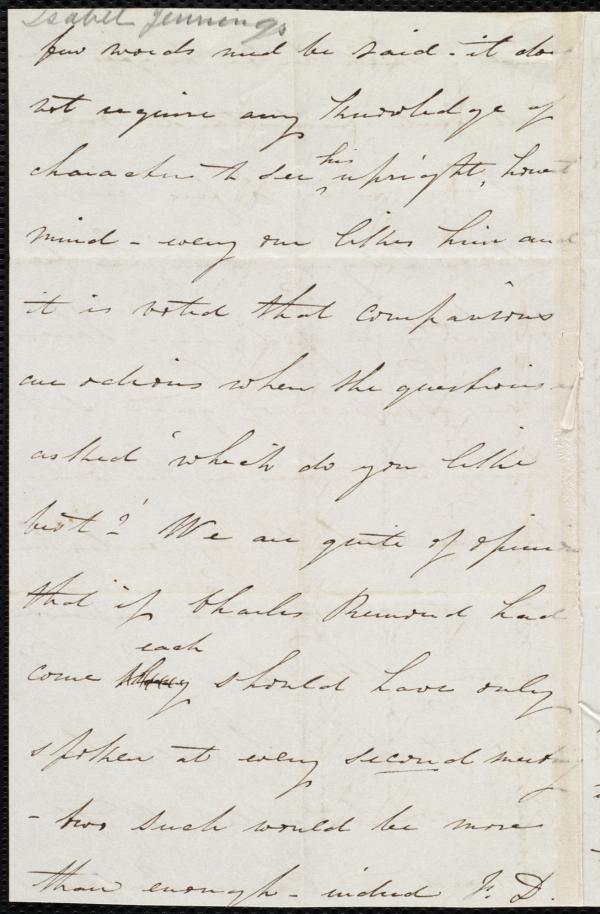 Isabel Jennings
few words need be said - it does
not require any knowledge of
character to see his upright, honest
mind - every one likes him and
it is voted that comparisons
are odious when the question is
asked 'which do you like
best?' We are quite of opinion
that if Charles Remond had
come they each should have only
spoken at every second meeting
- two such would be more
than enough - indeed F. D.